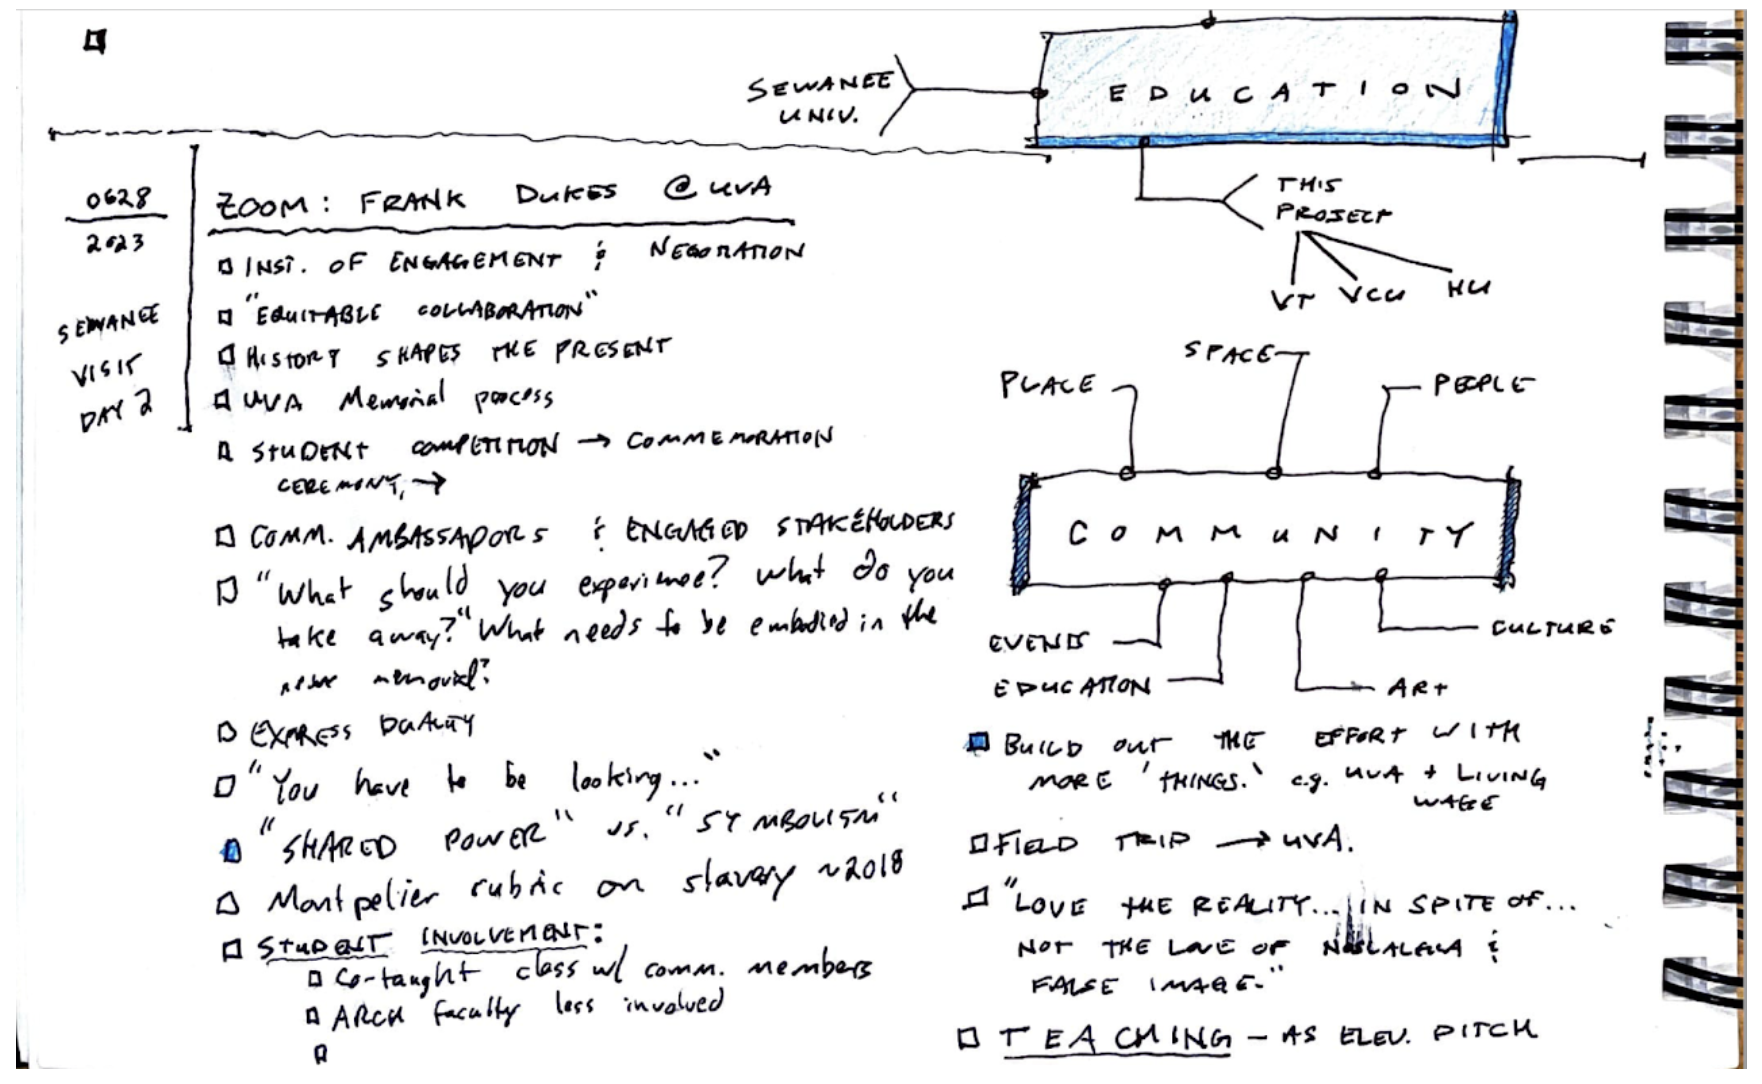 SEWANEE
UNIV.
EDUCATION
THIS
PROJECT
VT VCU HU
0628
2023
SEWANEE
VISIT
DAY 2
ZOOM: FRANK DUKES @ UVA
INST. OF ENGAGEMENT & NEGOTIATION
"EQUITABLE COLLABORATION"
HISTORY SHAPES THE PRESENT
UVA Memorial process
STUDENT COMPETITION → COMMEMORATION
CEREMONY, →
COMM. AMBASSADORS & ENGAGED STAKEHOLDERS
"What should you experience? What do you
take away?" What needs to be embodied in the
memorial?
EXPRESS DUALITY
"You have to be looking..."
"SHARED POWER" vs. "SYMBOLISM"
Montpelier rubric on slavery ~2018
STUDENT INVOLVEMENT:
Co-taught class w/ comm. members
ARCH faculty less involved
SPACE
PLACE
PEOPLE
COMMUNITY
EVENTS
CULTURE
EDUCATION
ART
BUILD OUT THE EFFORT WITH
MORE 'THINGS.' e.g. UVA + LIVING
WAGE
FIELD TRIP → UVA.
"LOVE THE REALITY... IN SPITE OF...
NOT THE LOVE OF &
FALSE IMAGE."
TEACHING - AS ELEV. PITCH